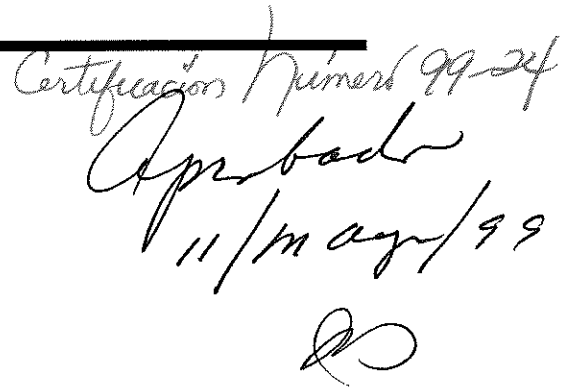 Certificación Número 99-24
Aprobado
11/mayo/99